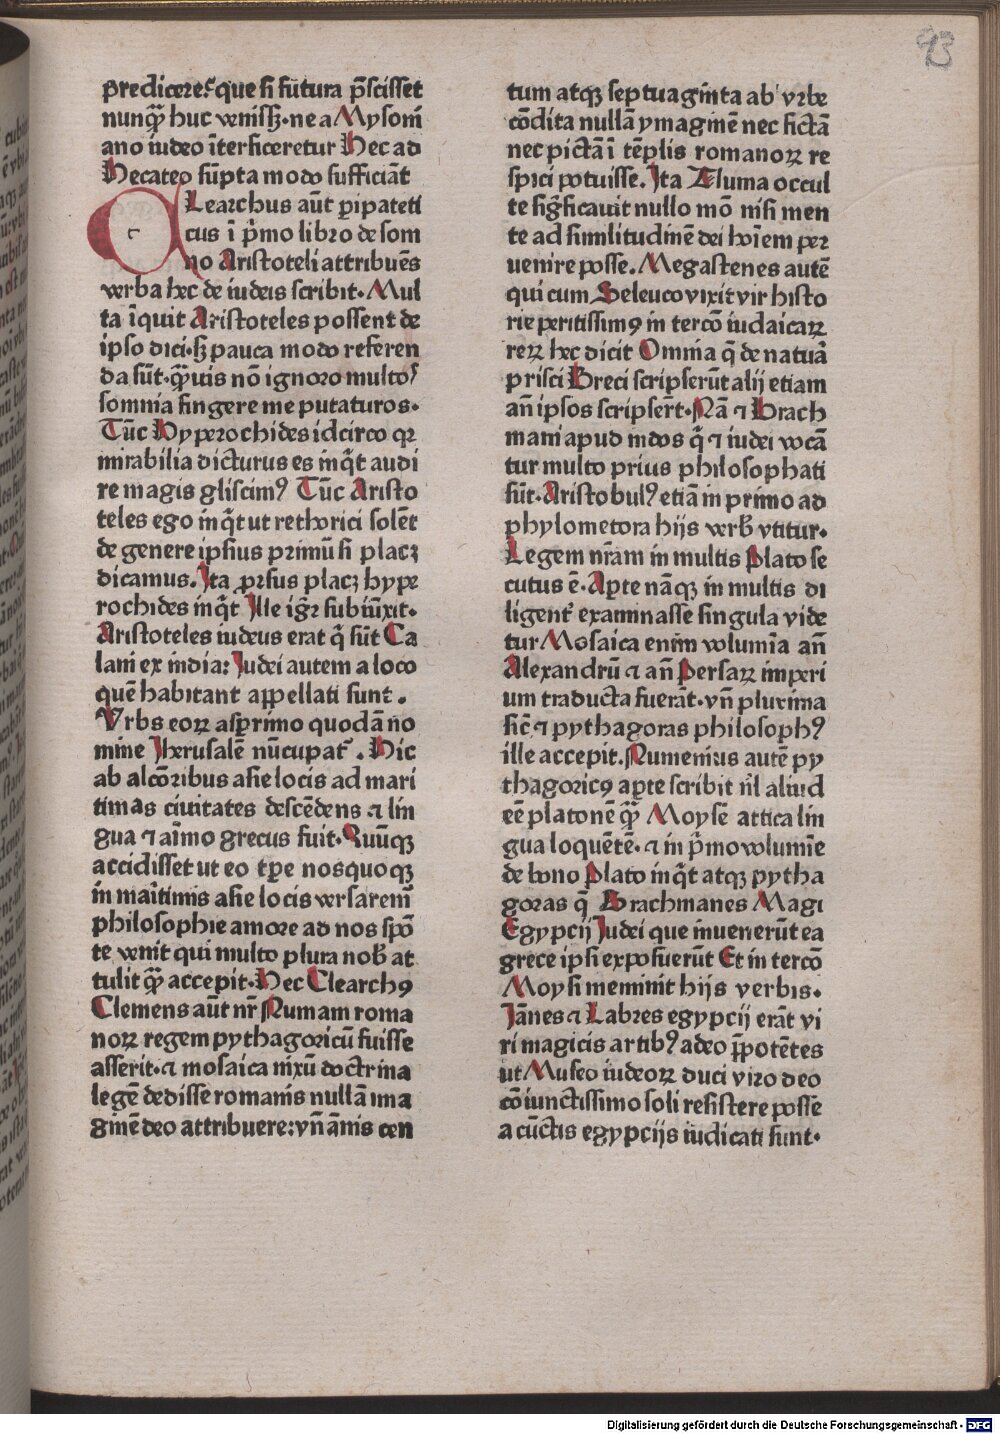 93
predicere? que si futura p̄scisset
nunqꝫ huc venissꝫ. ne a Mysom̄
ano iudeo īterficeretur Hec ad
Hecateo sūpta modo sufficiāt
CLearchus aūt ꝑipateti
cus ī p̄mo libro de som
no Aristoteli attribuēs
verba hec de iudeis scribit. Mul
ta īquit Aristoteles possent de
ipso dici. sꝫ pauca modo referen
da sūt. quis nō ignoro multos
somnia fingere me putaturos.
Tūc Hyperochides idcirco qꝛ
mirabilia dicturus es inq̄t audi
re magis gliscimꝰ Tūc Aristo
teles ego inq̄t ut rethorici solēt
de genere ipsius primū si placꝫ
dicamus. Ita ꝓrsus placꝫ hype
rochides inq̄t Ille igr̄ subiūxit.
Aristoteles iudeus erat q̄ sūt Ca
lani ex india: Iudei autem a loco
quē habitant appellati sunt.
Vrbs eoꝝ asꝑrimo quodā no
mine Iherusalē nūcupat᷑. Hic
ab alcōribus asie locis ad mari
timas ciuitates descēdens ⁊ lin
gua ⁊ aīmo grecus fuit. Quūqꝫ
accidisset ut eo tꝑe nosquoqꝫ
in maītimis asie locis versarem̄
philosophie amore ad nos spō
te venit qui multo plura nob̄ at
tulit qꝫ accepit. Hec Clearchꝰ
Clemens aūt nr̄ Numam roma
noꝝ regem pythagoricū fuisse
asserit. ⁊ mosaica nixū doctrina
legē dedisse romanis nullā ima
ginē deo attribuere: vn̄ ānis cen
tum atqꝫ septuaginta ab vrbe
cōdita nullā ymaginē nec fictā
nec pictā ī tēplis romanoꝝ re
spici potuisse. Ita Numa occul
te siḡficauit nullo mō nisi men
te ad similitudinē dei hoīem per
uenire posse. Megastenes autē
qui cum Seleuco vixit vir histo
rie peritissimꝰ in tercō iudaicaꝝ
reꝝ hec dicit Omnia q̄ de natuā
prisci Greci scripserūt alij etiam
an̄ ipsos scripser̄t. Nā ⁊ Brach
mani apud indos q̄ ⁊ iudei vocā
tur multo prius philosophati
sūt. Aristobulꝰ etiā in primo ad
phylometora hijs verb̄ vtitur.
Legem nr̄am in multis Plato se
cutus ē. Aꝑte nāqꝫ in multis di
ligent᷑ examinasse singula vide
tur Mosaica enim volumīa an̄
Alexandrū ⁊ an̄ Persaꝝ imperi
um traducta fuerāt. vn̄ plurima
sic̄ ⁊ pythagoras philosophꝰ
ille accepit. Numenius autē py
thagoricꝰ aꝑte scribit nl̄ aliud
eē platonē qꝫ Moysē attica lin
gua loquētē. ⁊ in p̄mo volumīe
de bono Plato inq̄t atqꝫ pytha
goras q̄ Brachmanes Magi
Egypcij Iudei que inuenerūt ea
grece ipsi exposuerūt Et in tercō
Moysi meminit hijs verbis.
Iānes ⁊ Labres egypcij erāt vi
ri magicis artibꝰ adeo p̄potētes
ut Museo iudeoꝝ duci viro deo
cōiunctissimo soli resistere posse
a cūctis egypcijs iudicati sunt.
Digitalisierung gefördert durch die Deutsche Forschungsgemeinschaft - DFG